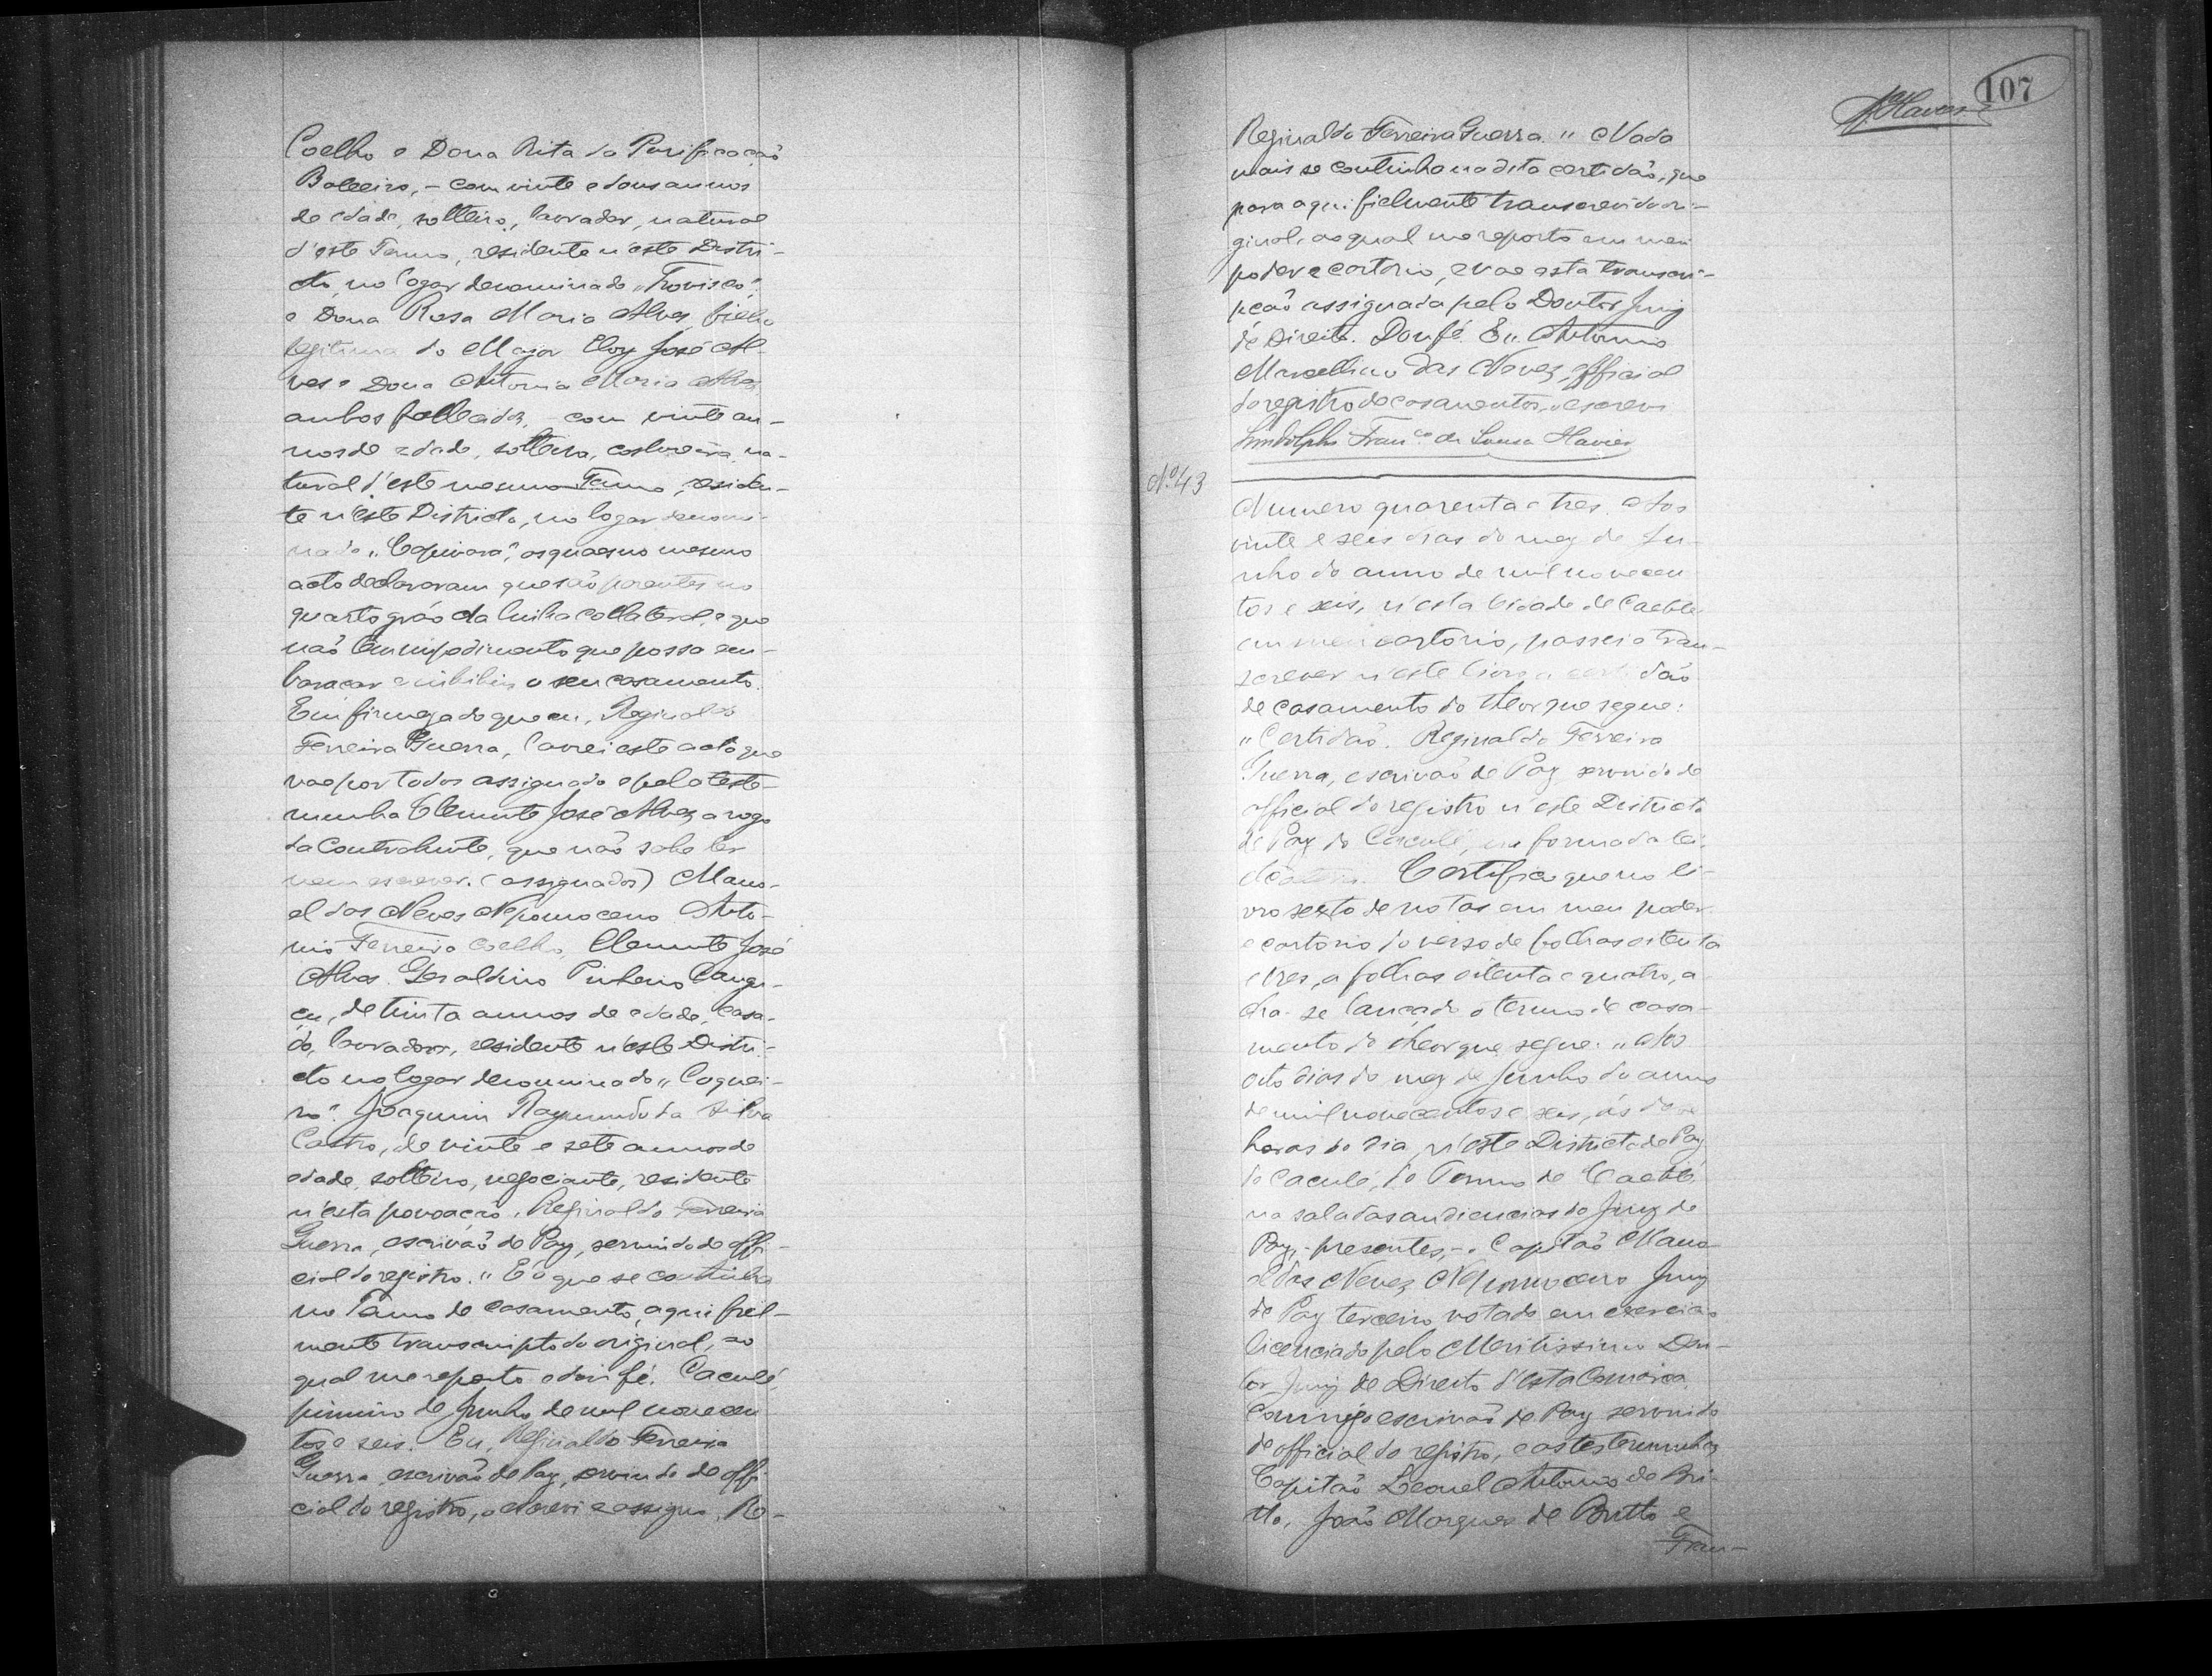 Coelho e Dona Rita da Purificação
Baleeiro, - com vinte e dous annos
de edade, solteiro, lavrador, natural
d'este Termo, residente n'este Distri-
cto, no logar denominado "Trovisco",
e Dona Rosa Maria Alves, filha
legitima do Major Eloy José Al-
ves e Dona Antonia Maria Alves,
ambos fallecidos, com vinte an-
nos de edade, solteira, costureira, na-
tural d'este mesmo Termo, residen-
te n'este Districto, no logar denomi-
nado "Capivara", os quaes no mesmo
acto declararam que são parentes no
quarto gráo da linha collateral, e que
não tem impedimento que possa em-
baraçar e inhibir o seu casamento.
Em firmeza do que eu, Reginaldo
Ferreira Guerra, lavrei este acto que
vae por todos assignado e pela teste-
munha Clemente José Alves a rogo
da Contrahente, que não sabe ler
nem escrever. (assignados) Mano-
el das Neves Nepomoceno Anto-
nio Ferreira Coelho, Clemente José
Alves. Geraldino Pinheiro Cangu-
çu, de trinta annos de edade, casa-
do, lavrador, residente n'este Distri-
cto no logar denominado "Coquei-
ro". Joaquim Raymundo da Silva
Castro, de vinte e sete annos de
edade, solteiro, negociante, residente
n'esta povoação. Reginaldo Ferreira
Guerra, escrivão de Paz, servindo de offi-
cial do registro." E o que se continha
no Termo de casamento, aqui fiel-
mente transcripto do original, ao
qual me reporto e dou fé. Caculé,
primeiro de Junho de mil novecen
tos e seis. Eu, Reginaldo Ferreira
Guerra, escrivão de Paz, servindo de offi-
cial do registro, o escrevi e assigno. Re-
107
Reginaldo Ferreira Guerra." Nada
mais se continha na dita certidão, que
para aqui fielmente transcrevi do ori-
ginal, ao qual me reporto em meu
poder e cartorio, e vae esta transcri-
pção assignada pelo Doutor Juiz
de Direito. Dou fé. Eu Antonio
Marcellino das Neves, official
do registro de casamentos, o escrevi
Lindolpho Franco de Sousa
Nº 43
Numero quarenta e tres. Aos
vinte e seis dias do mez de Ju-
nho do anno de mil novecen
tos e seis, n'esta Cidade de Caetité
em meu cartorio, passei a tran-
screver n'este livro a certidão
de casamento do theor que segue:
"Certidão. Reginaldo Ferreira
Guerra, escrivão de Paz servindo de
official do registro n'este Districto
de Paz do Caculé, na forma da lei,
Certifico que no li-
vro sexto de notas em meu poder
e cartorio do verso de folhas oitenta
e tres, a folhas oitenta e quatro, a-
cha-se lançado o termo de casa-
mento do theor que segue: "Aos
oito dias do mez de Junho do anno
de mil novecentos e seis, ás
horas do dia, n'este Districto de Paz
do Caculé, do Termo de Caetité,
na sala das audiencias do Juiz de
Paz, - presentes, - o Capitão Mano-
el das Neves Nepomoceno Juiz
de Paz terceiro votado em exercicio
licenciado pelo Meritissimo Dou-
tor Juiz de Direito d'esta Comarca,
commigo escrivão de Paz servindo
de official do registro, e as testemunhas
Capitão Leonel Antonio de Bri-
tto, João Marques de Britto e
Fran-